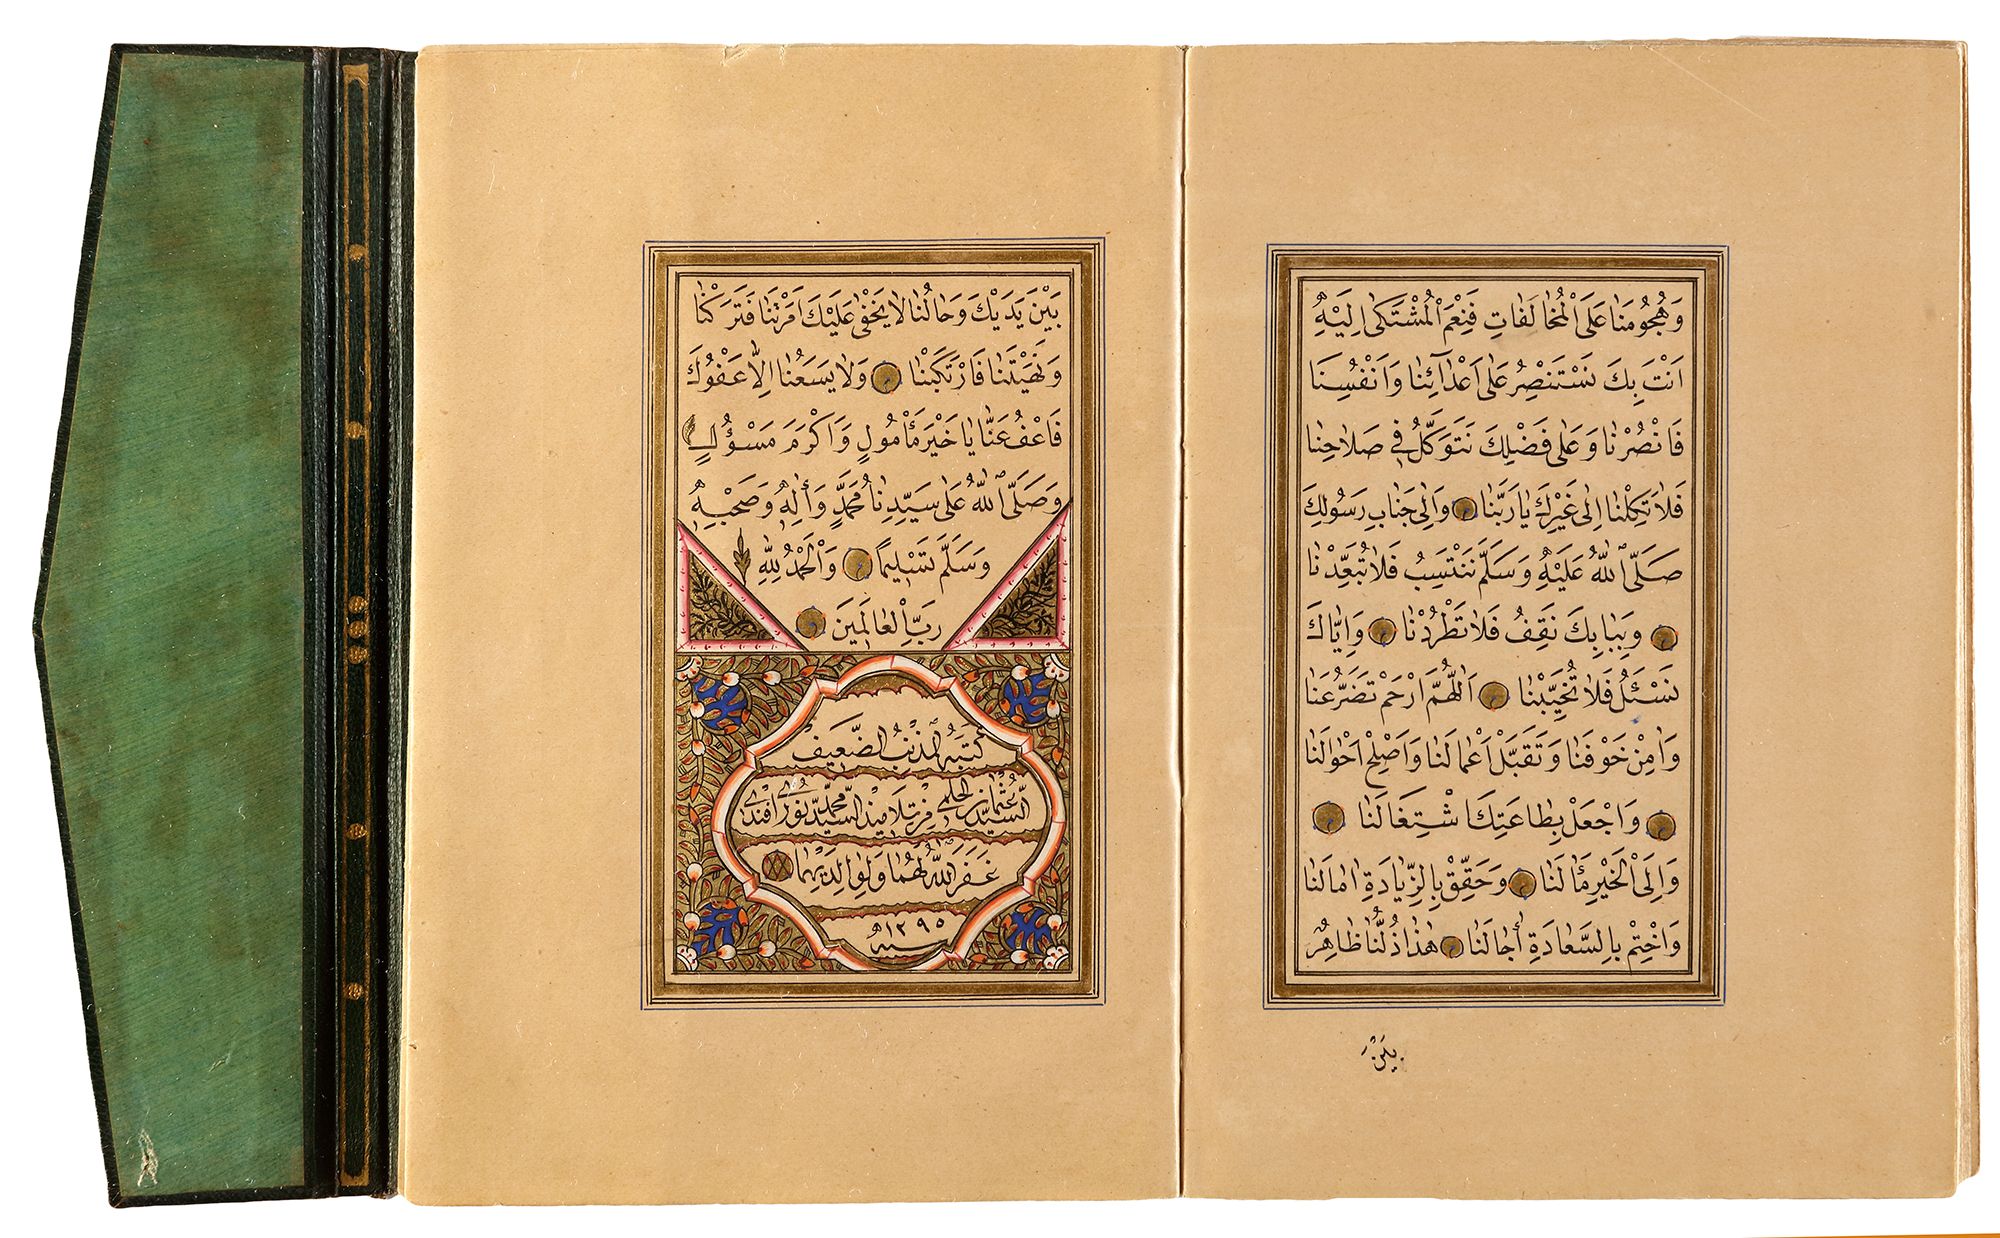 وَهُجُومَنَا عَلَى الْمُخَالَفَاتِ فَنِعْمَ الْمُشْتَكٰى اِلَيْهِ
اَنْتَ بِكَ نَسْتَنْصِرُ عَلٰى اَعْدَآئِنَا وَاَنْفُسِنَا
فَانْصُرْنَا وَعَلٰى فَضْلِكَ نَتَوَكَّلُ فِي صَلَاحِنَا
فَلَا تَكِلْنَا اِلٰى غَيْرِكَ يَا رَبَّنَا وَاِلٰى جَنَابِ رَسُولِكَ
صَلَّى اللّٰهُ عَلَيْهِ وَسَلَّمَ نَنْتَسِبُ فَلَا تُبَعِّدْنَا
وَبِبَابِكَ نَقِفُ فَلَا تَطْرُدْنَا وَاِيَّاكَ
نَسْئَلُ فَلَا تُخَيِّبْنَا اَللّٰهُمَّ ارْحَمْ تَضَرُّعَنَا
وَاٰمِنْ خَوْفَنَا وَتَقَبَّلْ اَعْمَالَنَا وَاَصْلِحْ اَحْوَالَنَا
وَاجْعَلْ بِطَاعَتِكَ اشْتِغَالَنَا
وَاِلَى الْخَيْرِ مَاٰلَنَا وَحَقِّقْ بِالزِّيَادَةِ اٰمَالَنَا
وَاخْتِمْ بِالسَّعَادَةِ اٰجَالَنَا هٰذَا ذُلُّنَا ظَاهِرٌ
بَيْنَ
بَيْنَ يَدَيْكَ وَحَالُنَا لَا يَخْفٰى عَلَيْكَ اَمَرْتَنَا فَتَرَكْنَا
وَنَهَيْتَنَا فَارْتَكَبْنَا وَلَا يَسَعُنَا اِلَّا عَفْوُكَ
فَاعْفُ عَنَّا يَا خَيْرَ مَأْمُولٍ وَاَكْرَمَ مَسْؤُلٍ
وَصَلَّى اللّٰهُ عَلٰى سَيِّدِنَا مُحَمَّدٍ وَاٰلِهٖ وَصَحْبِهٖ
وَسَلَّمَ تَسْلِيمًا وَالْحَمْدُ لِلّٰهِ
رَبِّ الْعَالَمِينَ
كتبه المذنب الضعيف
السيد عثمان الحلمي من تلاميذ السيد محمد نوري افندي
غفر الله لهما ولوالديهما
سنه ١٢٩٥